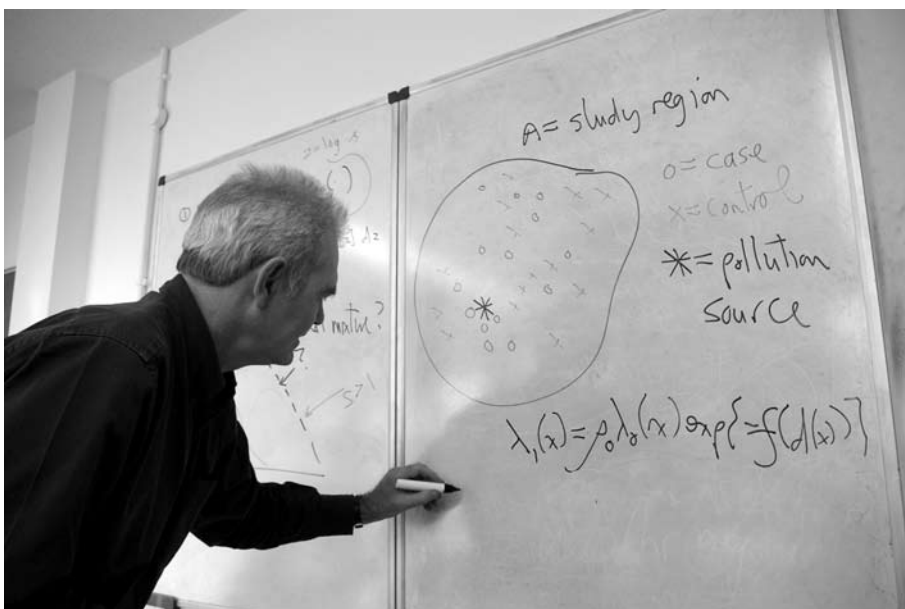 A = study region
o = case
x = control
* = pollution
source
λ₁(x) = ρ₀λ₀(x) exp{-f(d(x))}
z = log
①
(·)
dz
?
?
s > 1